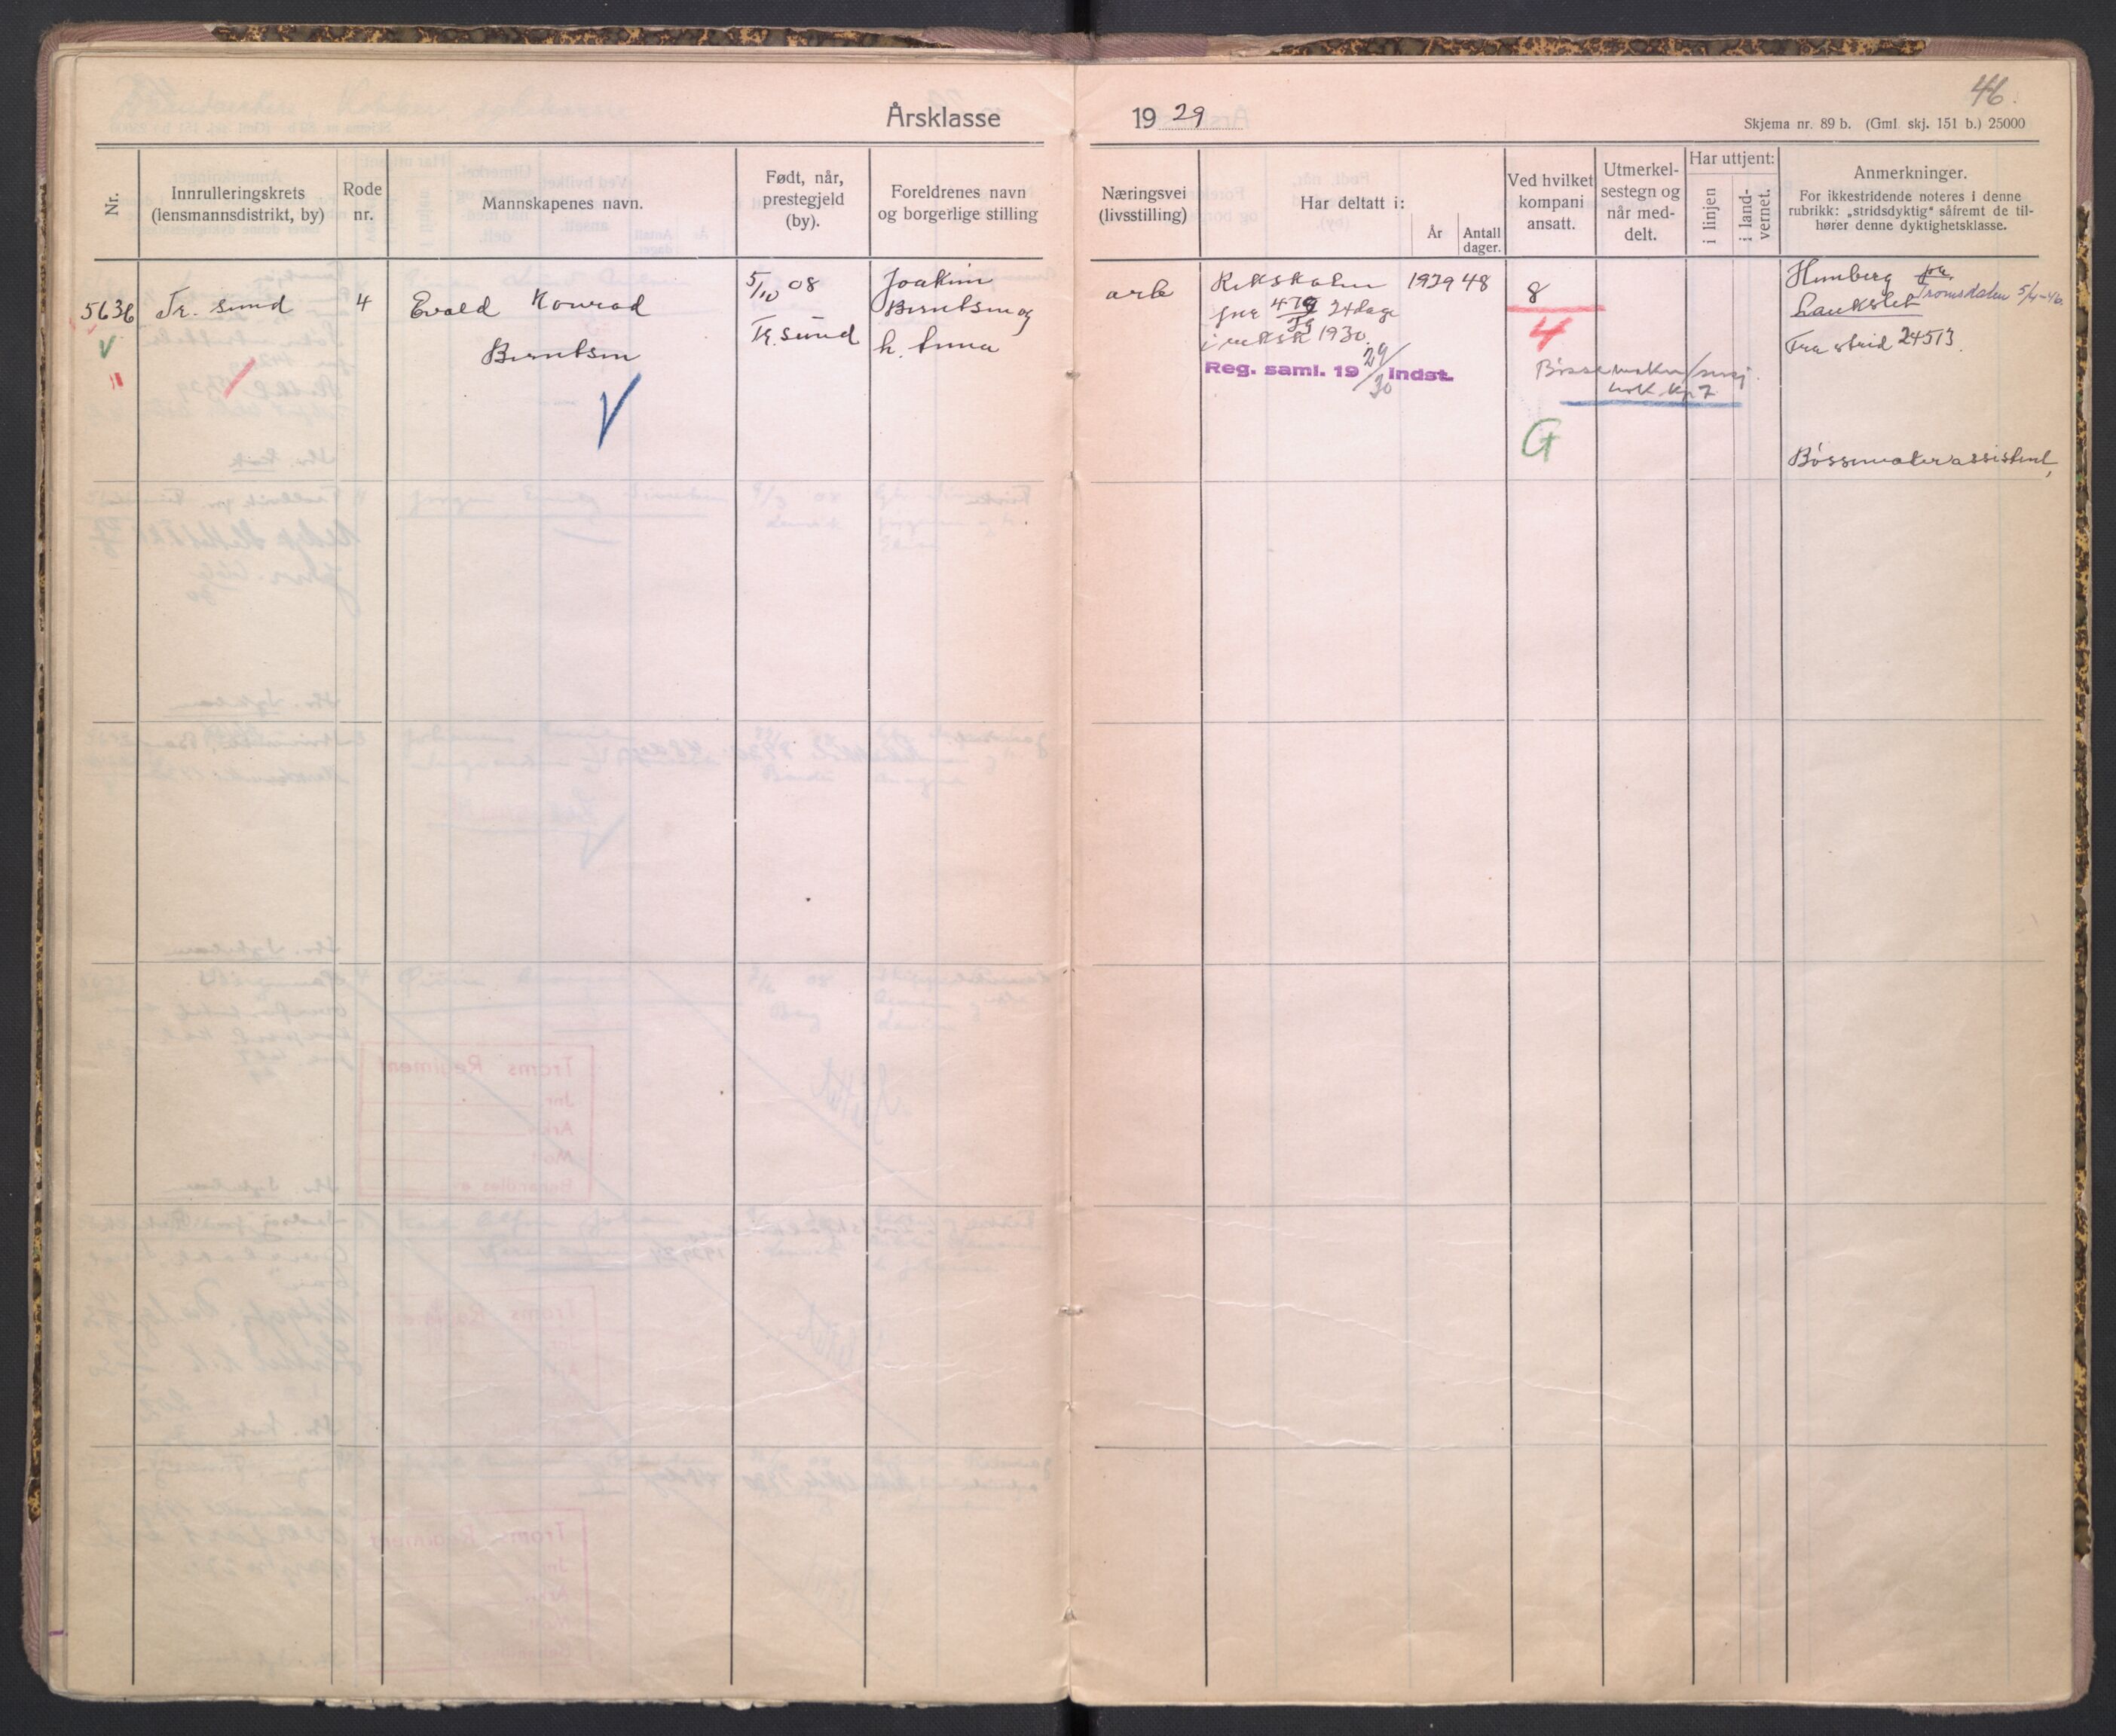 46.
Årsklasse 1929
Skjema nr. 89 b. (Gml skj. 151 b.) 25000
Nr.
Innrulleringskrets
(lensmannsdistrikt, by)
Rode
nr.
Mannskapenes navn.
Født, når,
prestegjeld
(by).
Foreldrenes navn
og borgerlige stilling
Næringsvei
(livsstilling)
Har deltatt i:
År
Antall
dager.
Ved hvilket
kompani
ansatt.
Utmerkel-
sestegn og
når med-
delt.
Har uttjent:
i linjen
i land-
vernet.
Anmerkninger.
For ikkestridende noteres i denne
rubrikk: „stridsdyktig" såfremt de til-
hører denne dyktighetsklasse.
5636
Tr. sund
4
Evald Konrad
Berntsen
5/10 08
Tr. sund
Joakim
Berntsen og
h. Anna
arb
Rekskolen 1929 48
24 dage
i reksk 1930.
Reg. saml. 19 29/30 Indst.
8
4
Bøssemaker
G
Tromsdalen 5/4-46
Laukslet
Fra strid 24513.
Bøssemakerassistent